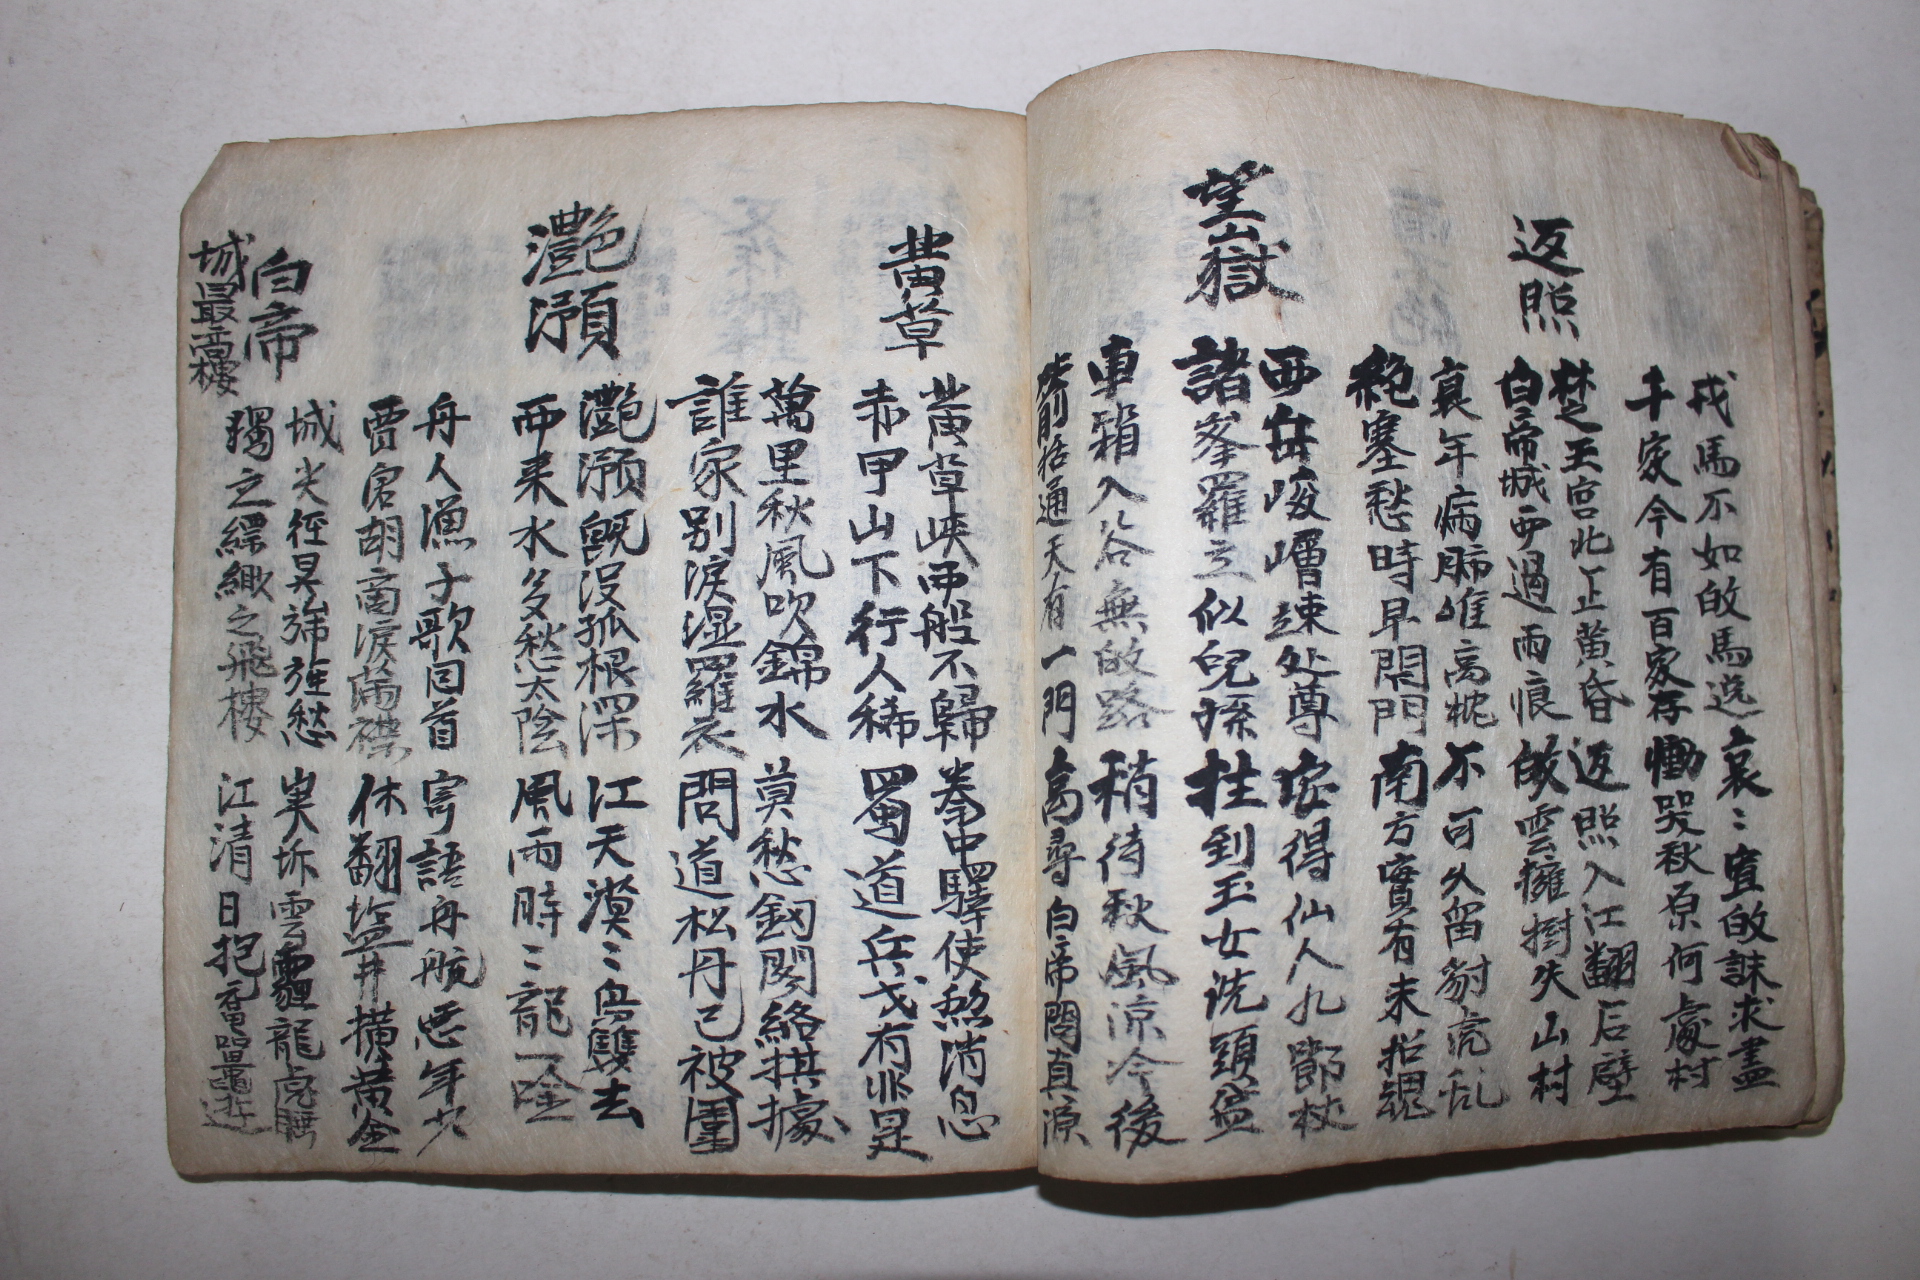 戎馬不如放馬逸 哀〻寡放誅求盡
千家今有百家存 慟哭秋原何處村
返照
楚王宮北正黃昏 返照入江翻石壁
白帝城西過雨痕 故雲擁樹失山村
衰年病肺唯高枕 不可久留豺虎乱
絶塞愁時早閉門 南方實有未招魂
望嶽
西岳崚嶒竦处尊 安得仙人九節杖
諸峯羅立似兒孫 拄到玉女洗頭盆
車箱入谷無放路 稍待秋風凉冷後
箭栝通天有一門 高尋白帝問真源
黃草
黃草峽西船不歸 拳中驛使煞消息
赤甲山下行人稀 蜀道兵戈有非是
萬里秋風吹錦水 莫愁釰閣絡拱據
誰家別淚湿羅衣 問道松丹已被圍
灔澦
灔澦旣没孤根深 江天漠〻鳥雙去
西来水多愁太陰 風雨時〻龍一唫
舟人漁子歌回首 寄語舟航惡年少
賈客胡商淚滿襟 休翻塩井横黃金
白帝城最高樓
城尖徑昃旆旌愁 峡坼雲霾龍虎睡
獨之縹緲之飛樓 江清日抱黿鼉遊